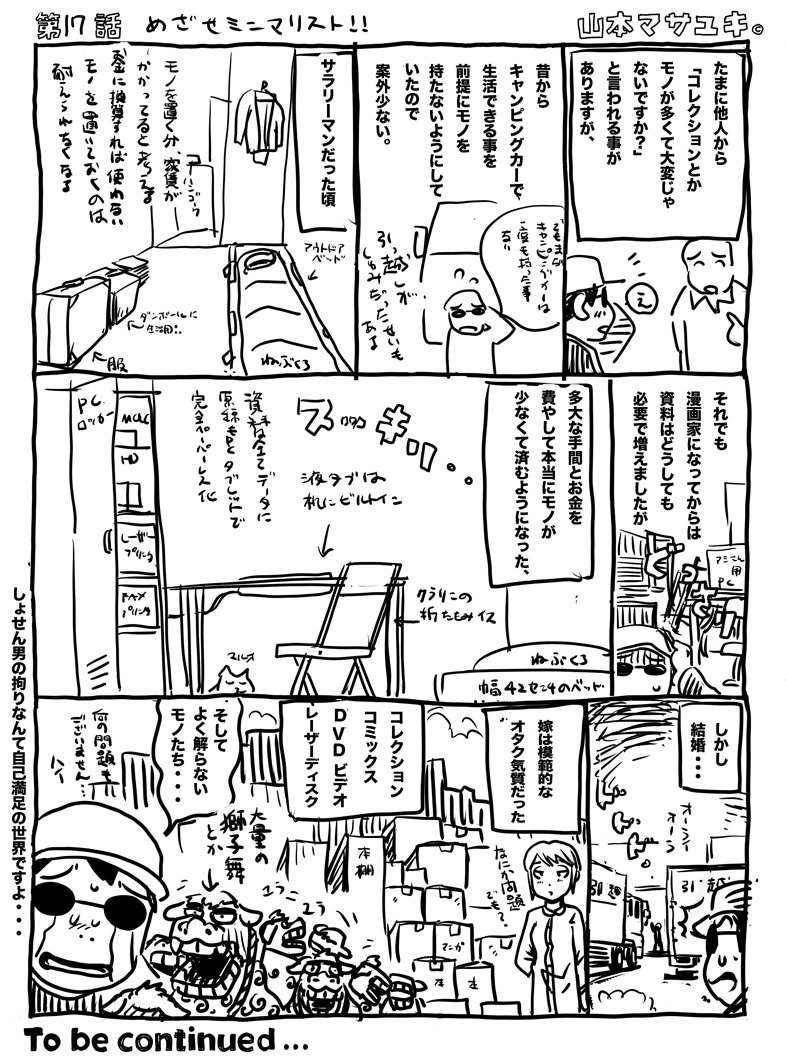 第17話 めざせミニマリスト!!
山本マサユキ©
たまに他人から
「コレクションとか
モノが多くて大変じゃ
ないですか?」
と言われる事が
ありますが、
え
昔から
キャンピングカーで
生活できる事を
前提にモノを
持たないようにして
いたので
案外少ない。
でもまだ
キャンピングカーは
一度も持った事
ない
引っ越しが
しゅみだったせいも
ある
サラリーマンだった頃
モノを置く分、家賃が
かかってると考える
金に換算すれば使わない
モノを置いておくのは
耐えられなくなる
ハンゴーク
アウトドア
ベッド
ダンボールに
生活用品
服
ねぶくろ
それでも
漫画家になってからは
資料はどうしても
必要で増えましたが
どさどさ
アシさん
用
PC
多大な手間とお金を
費やして本当にモノが
少なくて済むようになった、
スッキリ・・
液タブは
机にビルトイン
資料は全てデータに
原稿もPCとタブレットで
完全ペーパーレス化
PC
ロッカー
MAC
HD
レーザー
プリンタ
FAX
プリンタ
クラリーノの
折りたたみイス
マルオ
ねぶくろ
幅42センチのベッド
しかし
結婚・・・
ドドド
オーライ
オーラーイ
引越
引越
嫁は模範的な
オタク気質だった
なにか問題
でも?
コレクション
コミックス
DVD ビデオ
レーザーディスク
本棚
マンガ
本
本
そして
よく解らない
モノたち・・・
大量の
獅子舞
とか
ユラ
ユラ
何の問題も
ございません…
ハイ
しょせん男の拘りなんて自己満足の世界ですよ・・・
To be continued...